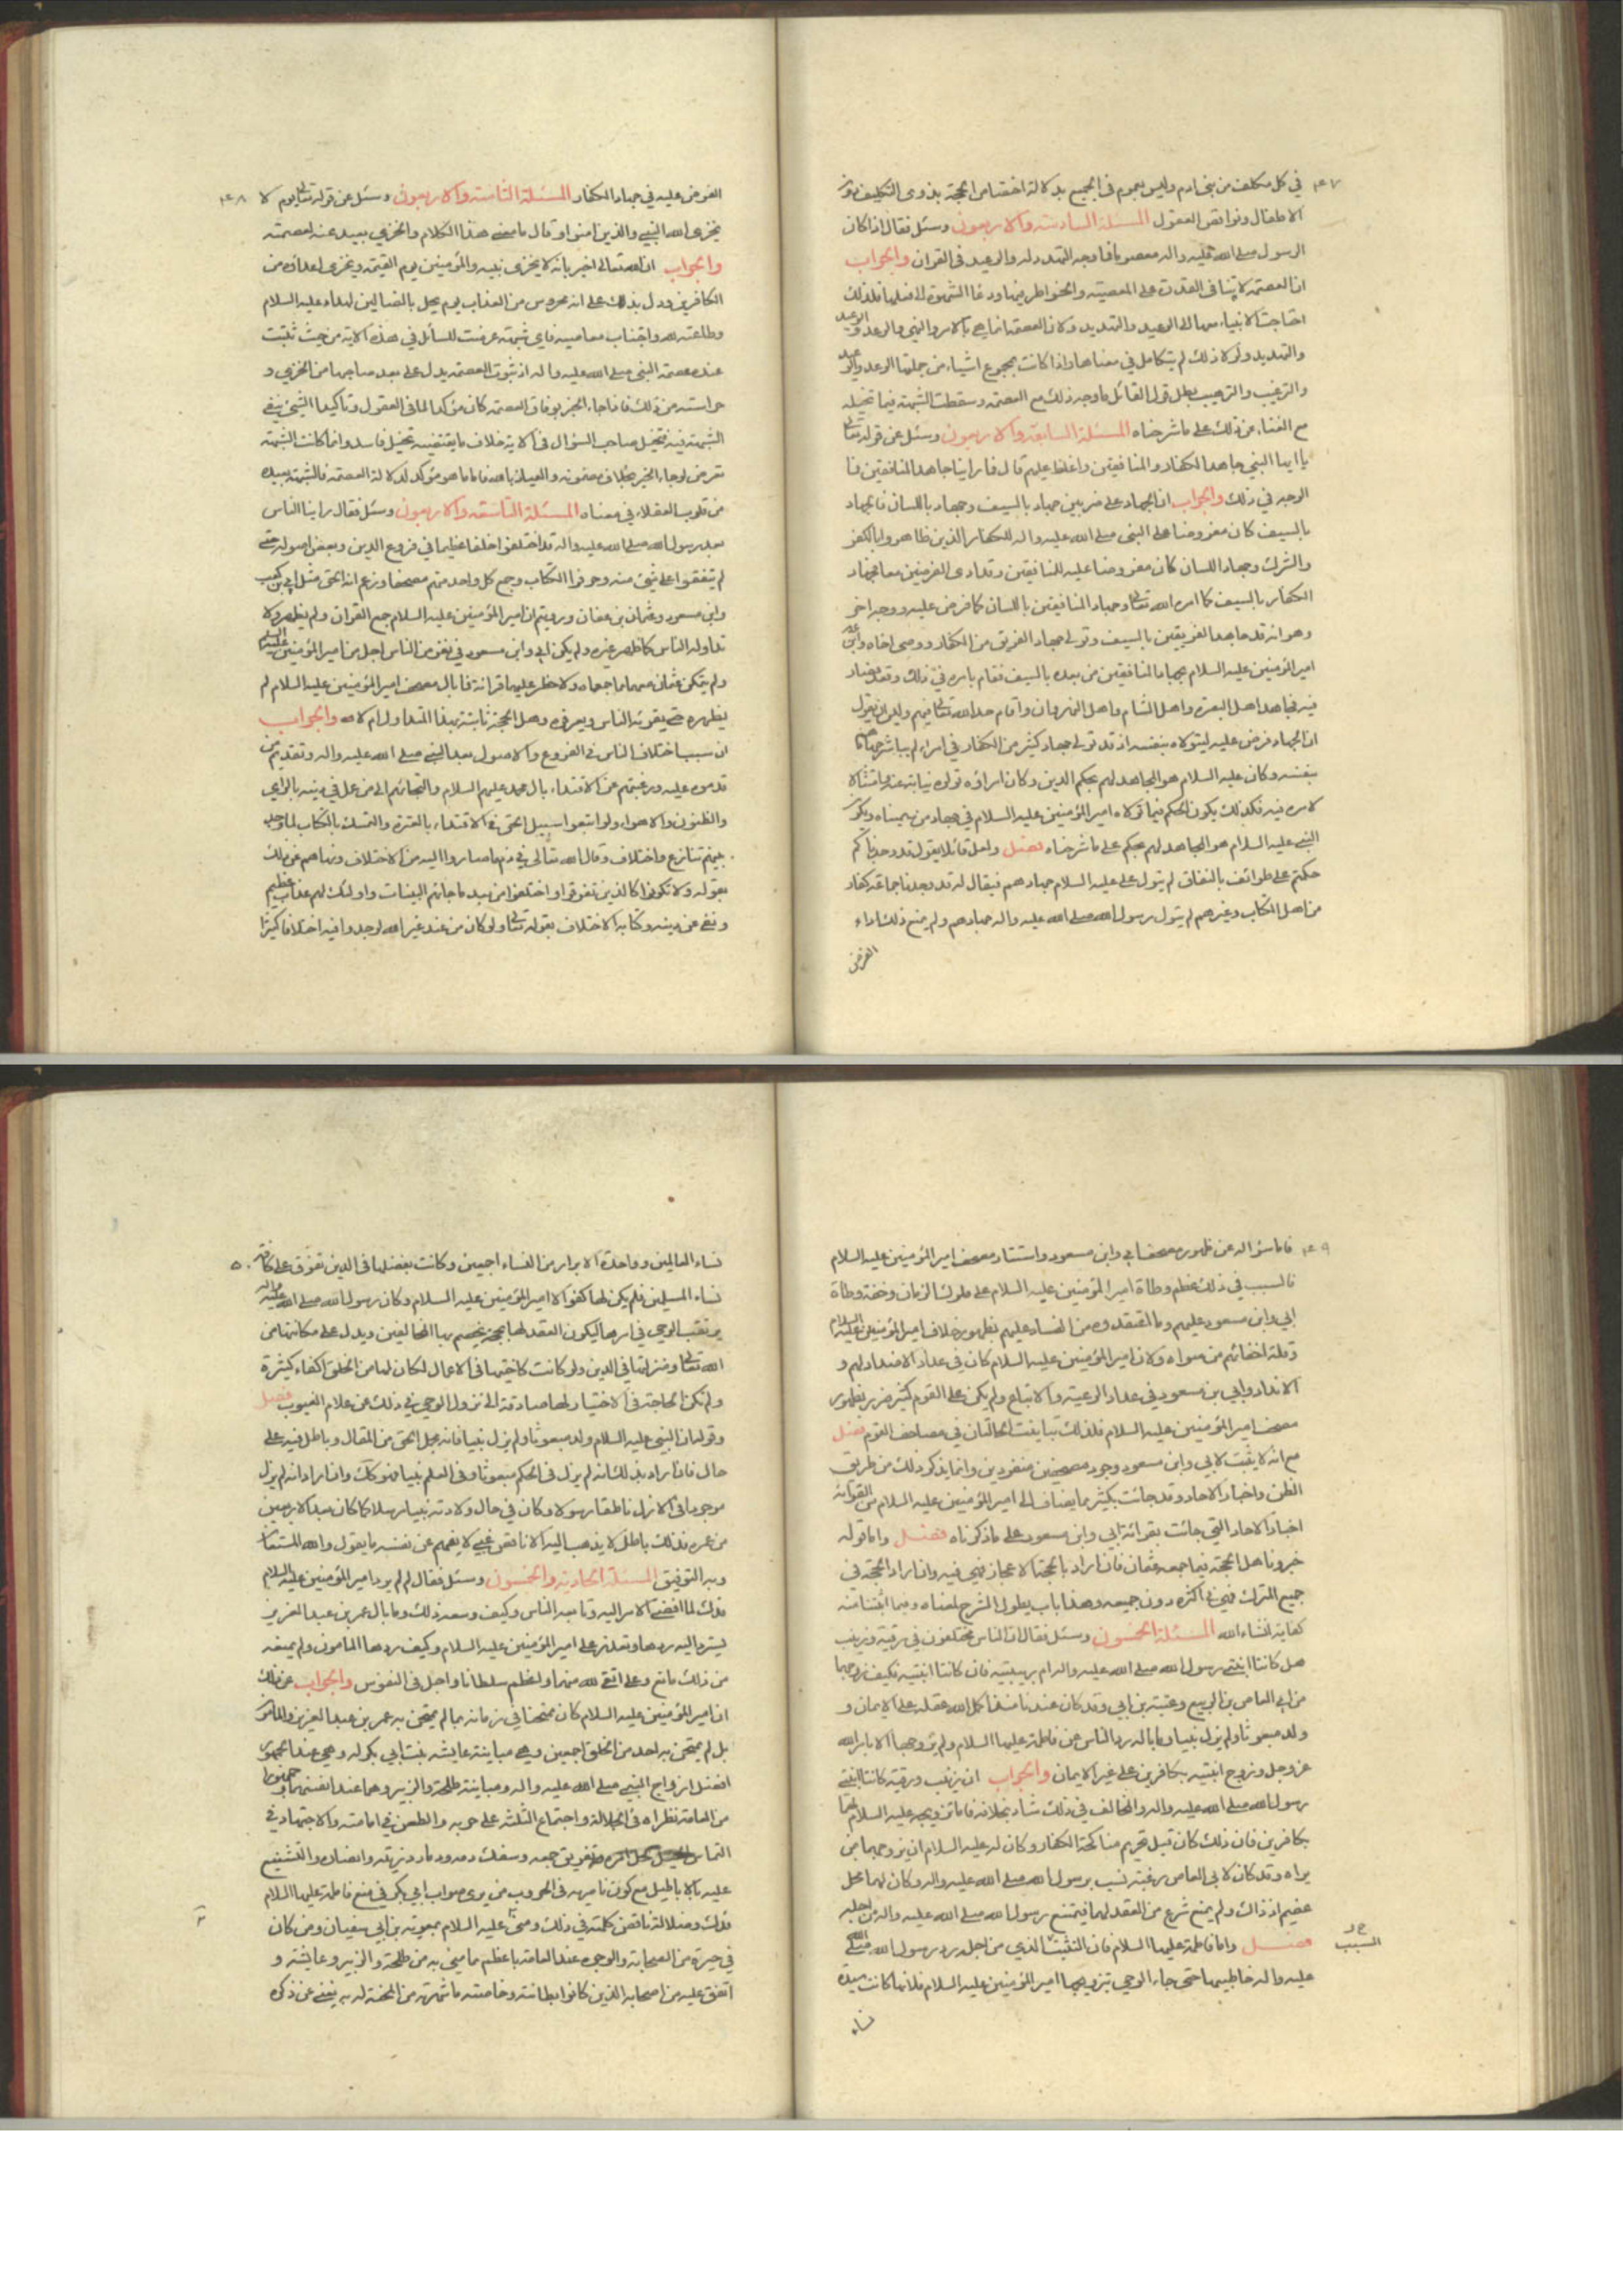 ٤٧
في كل مكلف من بني ادم وليس بعموم في الجميع بدلالة اختصاص الحجة بذوى التكليف دون
الاطفال ونواقص العقول المسئلة السادسة والاربعون وسئل فقال اذا كان
الرسول صلى الله عليه واله معصوما فما وجه التهدد له والوعيد في القران والجواب
ان العصمة لا تنافى القدرة على المعصية والخواطر فيها ودعا الشهوة الى فعلها فلذلك
احتاجت الانبياء معها الى الوعيد والتهديد ولان العصمة انما هي بالامر والنهى والوعد والوعيد
والتهديد ولولا ذلك لم يتكامل في معناها واذا كانت بمجموع اشياء من جملتها الوعد والوعيد
والترغيب والترهيب بطل قول القائل ما وجه ذلك مع العصمة وسقطت الشبهة فيما تخيله
مع الغناء من ذلك على ما شرحناه المسئلة السابعة والاربعون وسئل عن قوله تعالى
يا ايها النبي جاهد الكفار والمنافقين واغلظ عليهم قال فما راينا جاهد المنافقين فما
الوجه في ذلك والجواب ان الجهاد على ضربين جهاد بالسيف وجهاد باللسان فالجهاد
بالسيف كان مفروضا على النبى صلى الله عليه واله للكفار الذين ظاهروا بالكفر
والشرك وجهاد اللسان كان مفروضا عليه للمنافقين وقد ادى الفرضين معا فجهاد
الكفار بالسيف كما امره الله تعالى وجهاد المنافقين باللسان كما فرض عليه ووجه اخر
وهو انه قد جاهد الفريقين بالسيف وتولى جهاد الفريق من الكفار ووصى اخاه وابن عمه
امير المؤمنين عليه السلام بجهاد المنافقين من بعده بالسيف فقام بامره في ذلك
فيه فجاهد اهل البصرة واهل الشام واهل النهروان واقام حد الله تعالى فيهم وليس ان يقول
ان الجهاد فرض عليه ليتولاه بنفسه اذ قد تولى جهاد كثير من الكفار في امراء لم يباشر جهادهم
بنفسه وكان عليه السلام هو المجاهد لهم بحكم الدين وكان امراؤه تولوه نيابة عنه وامتثالا
لامره فيه فكذلك يكون الحكم فيما تولاه امير المؤمنين عليه السلام في جهاد من سميناه ويكون
النبي عليه السلام هو المجاهد لهم بحكم على ما شرحناه فصل ولعل قائلا يقول قد وجدناكم
حكمتم على طوائف بالنفاق لم يتول على عليه السلام جهادهم فيقال له قد وجدنا جماعة كفار
من اهل الكتاب وغيرهم لم يتول رسول الله صلى الله عليه واله جهادهم ولم يمنع ذلك اداء
الفرض
٤٨
الفرض عليه في جهاد الكفار المسئلة الثامنة والاربعون وسئل عن قوله تعالى يوم لا
يخزى الله النبي والذين امنوا وقال ما معنى هذا الكلام والخزي بعيد عنه لعصمته
والجواب ان الله تعالى اخبر بانه لا يخزى نبيه والمؤمنين يوم القيمة ويخزى اعداؤه من
الكافرين ودل بذلك على انه محروس من العذاب يوم يحل بالضالين لهداه عليه السلام
وطاعته لله واجتناب معاصيه فاي شبهة عرضت للسائل في هذه الاية من حيث ثبتت
عنده عصمة النبى صلى الله عليه واله اذ ثبوت العصمة يدل على بعد صاحبها من الخزي و
حراسته من ذلك فاذا جاء الخبر بوفاق العصمة كان مؤكدا لما في العقول وتاكيد الشيئ ينفي
الشبهة فيه فتخيل صاحب السؤال في الاية خلاف ما يقتضيه تخيل فاسد وانما كانت الشبهة
تعرض لو جاء الخبر بخلاف مضمونه والعياذ بالله فاما ما هو مؤكد لدلالة العصمة فالشبهة بعيدة
من قلوب العقلاء في معناه المسئلة التاسعة والاربعون وسئل فقال راينا الناس
بعد رسول الله صلى الله عليه واله قد اختلفوا خلفا عظيما في فروع الدين وبعض اصوله حتى
لم يتفقوا على شيئ منه وحرفوا الكتاب وجمع كل واحد منهم مصحفا وزعم انه الحق مثل ابي بن كعب
وابن مسعود وعثمان بن عفان ورويتم ان امير المؤمنين عليه السلام جمع القران ولم يظهره ولا
تداوله الناس كما ظهر غيره ولم يكن ابي وابن مسعود في نفوس الناس اجل من امير المؤمنين عليه السلام
ولم يتمكن عثمان منعهما مما جمعاه ولا حظر عليهما قرائة فما بال مصحف امير المؤمنين عليه السلام لم
يظهره حتى يقرئه الناس ويعرفوه وهل الحجة ثابتة بهذا المتداول ام لا والجواب
ان سبب اختلاف الناس في الفروع والاصول بعد النبي صلى الله عليه واله وتقديم من
قدموه عليه ورغبتهم عن الاقتداء بال محمد عليهم السلام والتجائهم الى من عمل في دينه بالراي
والظنون والاهواء ولو اتبعوا سبيل الحق في الاقتداء بالعترة والتمسك بالكتاب لما وجد
بينهم تنازع واختلاف وقال الله تعالى في ذم ما صاروا اليه من الاختلاف ونهاهم عن ذلك
بقوله ولا تكونوا كالذين تفرقوا واختلفوا من بعد ما جائهم البينات واولئك لهم عذاب عظيم
ونفى عن دينه وكتابه الاختلاف بقوله تعالى ولو كان من عند غير الله لوجدوا فيه اختلافا كثيرا
٤٩
فاما سؤاله عن ظهور مصحف ابي وابن مسعود واستتار مصحف امير المؤمنين عليه السلام
فالسبب في ذلك عظم وطاة امير المؤمنين عليه السلام على ملوك الزمان وخفة وطاة
ابي وابن مسعود عليهم وما اعتقدوه من الفساد عليهم بظهور خلاف امير المؤمنين عليه السلام
وقلة احفالهم من سواه ولان امير المؤمنين عليه السلام كان في عداد الاضداد لهم و
الانداد وابي بن مسعود في عداد الرعية والاتباع ولم يكن على القوم كثير ضرر بظهور
مصحف امير المؤمنين عليه السلام فلذلك تباينت الحالتان في مصاحف القوم فصل
مع انه لا يثبت لابي وابن مسعود وجود مصحفين منفردين وانما يذكر ذلك من طريق
الظن واخبار الاحاد وقد جائت بكثير مما يضاف الى امير المؤمنين عليه السلام من القرائة
اخبار الاحاد التي جائت بقرائة ابي وابن مسعود على ما ذكرناه فصل واما قوله
خبرونا هل الحجة فيما جمعه عثمان فان اراد بالحجة الاعجاز فهي فيه وان اراد الحجة في
جميع المنزل فهي في اكثره دون جميعه وهذا باب يطول الشرح لمعناه وفيما اثبتنا منه
كفاية انشاء الله المسئلة الخمسون وسئل فقال ان الناس مختلفون في رقية وزينب
هل كانتا ابنتي رسول الله صلى الله عليه واله ام ربيبتيه فان كانتا ابنتيه فكيف زوجهما
من ابي العاص بن الربيع وعتبة بن ابي وقد كان عندنا منذ اكمل الله عقله على الايمان و
ولد مبعوثا ولم يزل نبيا وما باله رد الناس عن فاطمة عليها السلام ولم يزوجها الا بامر الله
عز وجل وزوج ابنتيه بكافرين على غير الايمان والجواب ان زينب ورقية كانتا ابنتي
رسول الله صلى الله عليه واله والمخالف في ذلك شاذ بخلافه فاما تزويجه عليه السلام لهما
بكافرين فان ذلك كان قبل تحريم مناكحة الكفار وكان له عليه السلام ان يزوجهما من
يراه وقد كان لابي العاص وعتبة نسب برسول الله صلى الله عليه واله وكان لهما محل
عظيم اذ ذاك ولم يمنع شرع من العقد لهما فيمتنع رسول الله صلى الله عليه واله من اجله
فصل واما فاطمة عليها السلام فان التثبت الذي من اجله رد رسول الله صلى الله
السبب
عليه واله خاطبيها حتى جاء الوحي بتزويجها امير المؤمنين عليه السلام فلانها كانت سيدة
نساء
٥٠
نساء العالمين وواحدة الابرار من النساء اجمعين وكانت بفضلها في الدين تفوق على كافة
نساء المسلمين فلم يكن لها كفوا الا امير المؤمنين عليه السلام وكان رسول الله صلى الله عليه واله
يرتقب الوحي في امرها ليكون العقد لها بحجة يخصم بها المخالفين ويدل على مكانتها من
الله تعالى ومنزلتها في الدين ولو كانت كاختيها في الاعمال لكان لها من الخلق اكفاء كثيرة
ولم تكن الحاجة في الاختيار لها صادقة الى نزول الوحي في ذلك عن علام الغيوب فصل
وقوله ان النبي عليه السلام ولد مبعوثا ولم يزل نبيا فانه مجمل الحق من المقال وباطل فيه على
حال فان اراد بذلك انه لم يزل في الحكم مبعوثا وفي العلم نبيا فهو كذلك وان اراد انه لم يزل
موجودا في الازل ناطقا رسولا وكان في حال ولادته نبيا مرسلا كما كان بعد الاربعين
من عمره فذلك باطل لا يذهب اليه الا ناقص غبي لا يفهم عن نفسه ما يقول والله المستعان
وبه التوفيق المسئلة الحادية والخمسون وسئل فقال لم لم يرد امير المؤمنين عليه السلام
فدك لما افضى الامر اليه وتابعه الناس وكيف وسعه ذلك وما بال عمر بن عبد العزيز
تيسر اليه ردها وتعذر على امير المؤمنين عليه السلام وكيف ردها المامون ولم يمنعه
من ذلك مانع وعلي اتقى لله منهما واعظم سلطانا واجل في النفوس والجواب عن ذلك
ان امير المؤمنين عليه السلام كان ممتحنا في زمانه بما لم يمتحن به عمر بن عبد العزيز والمامون
بل لم يمتحن به احد من الخلق اجمعين وهي مباينة عايشه بنت ابي بكر له وهي عند الجمهور
افضل ازواج النبي صلى الله عليه واله ومباينة طلحة والزبير وهما عند انفسهما وجمهور
من العامة نظراه في الجلالة واجتماع الثلثة على حربه والطعن في امامته والاجتهاد في
التماس تفريق جمعه وسفك دمه ودماء ذريته وانصاره والتشنيع
عليه بالاباطيل مع كون ناصريه في الحروب من يرى صواب ابي بكر في منع فاطمة عليها السلام
فدك وضلالة ناقض كلمته في ذلك ومني عليه السلام بمعوية بن ابي سفيان ومن كان
في حيزه من الصحابة والوجوه عند العامة باعظم ما مني به من طلحة والزبير وعايشة و
اتفق عليه من اصحابه الذين كانوا بطانته وخاصته ما شهرته من المحنة له به يغني عن ذكره